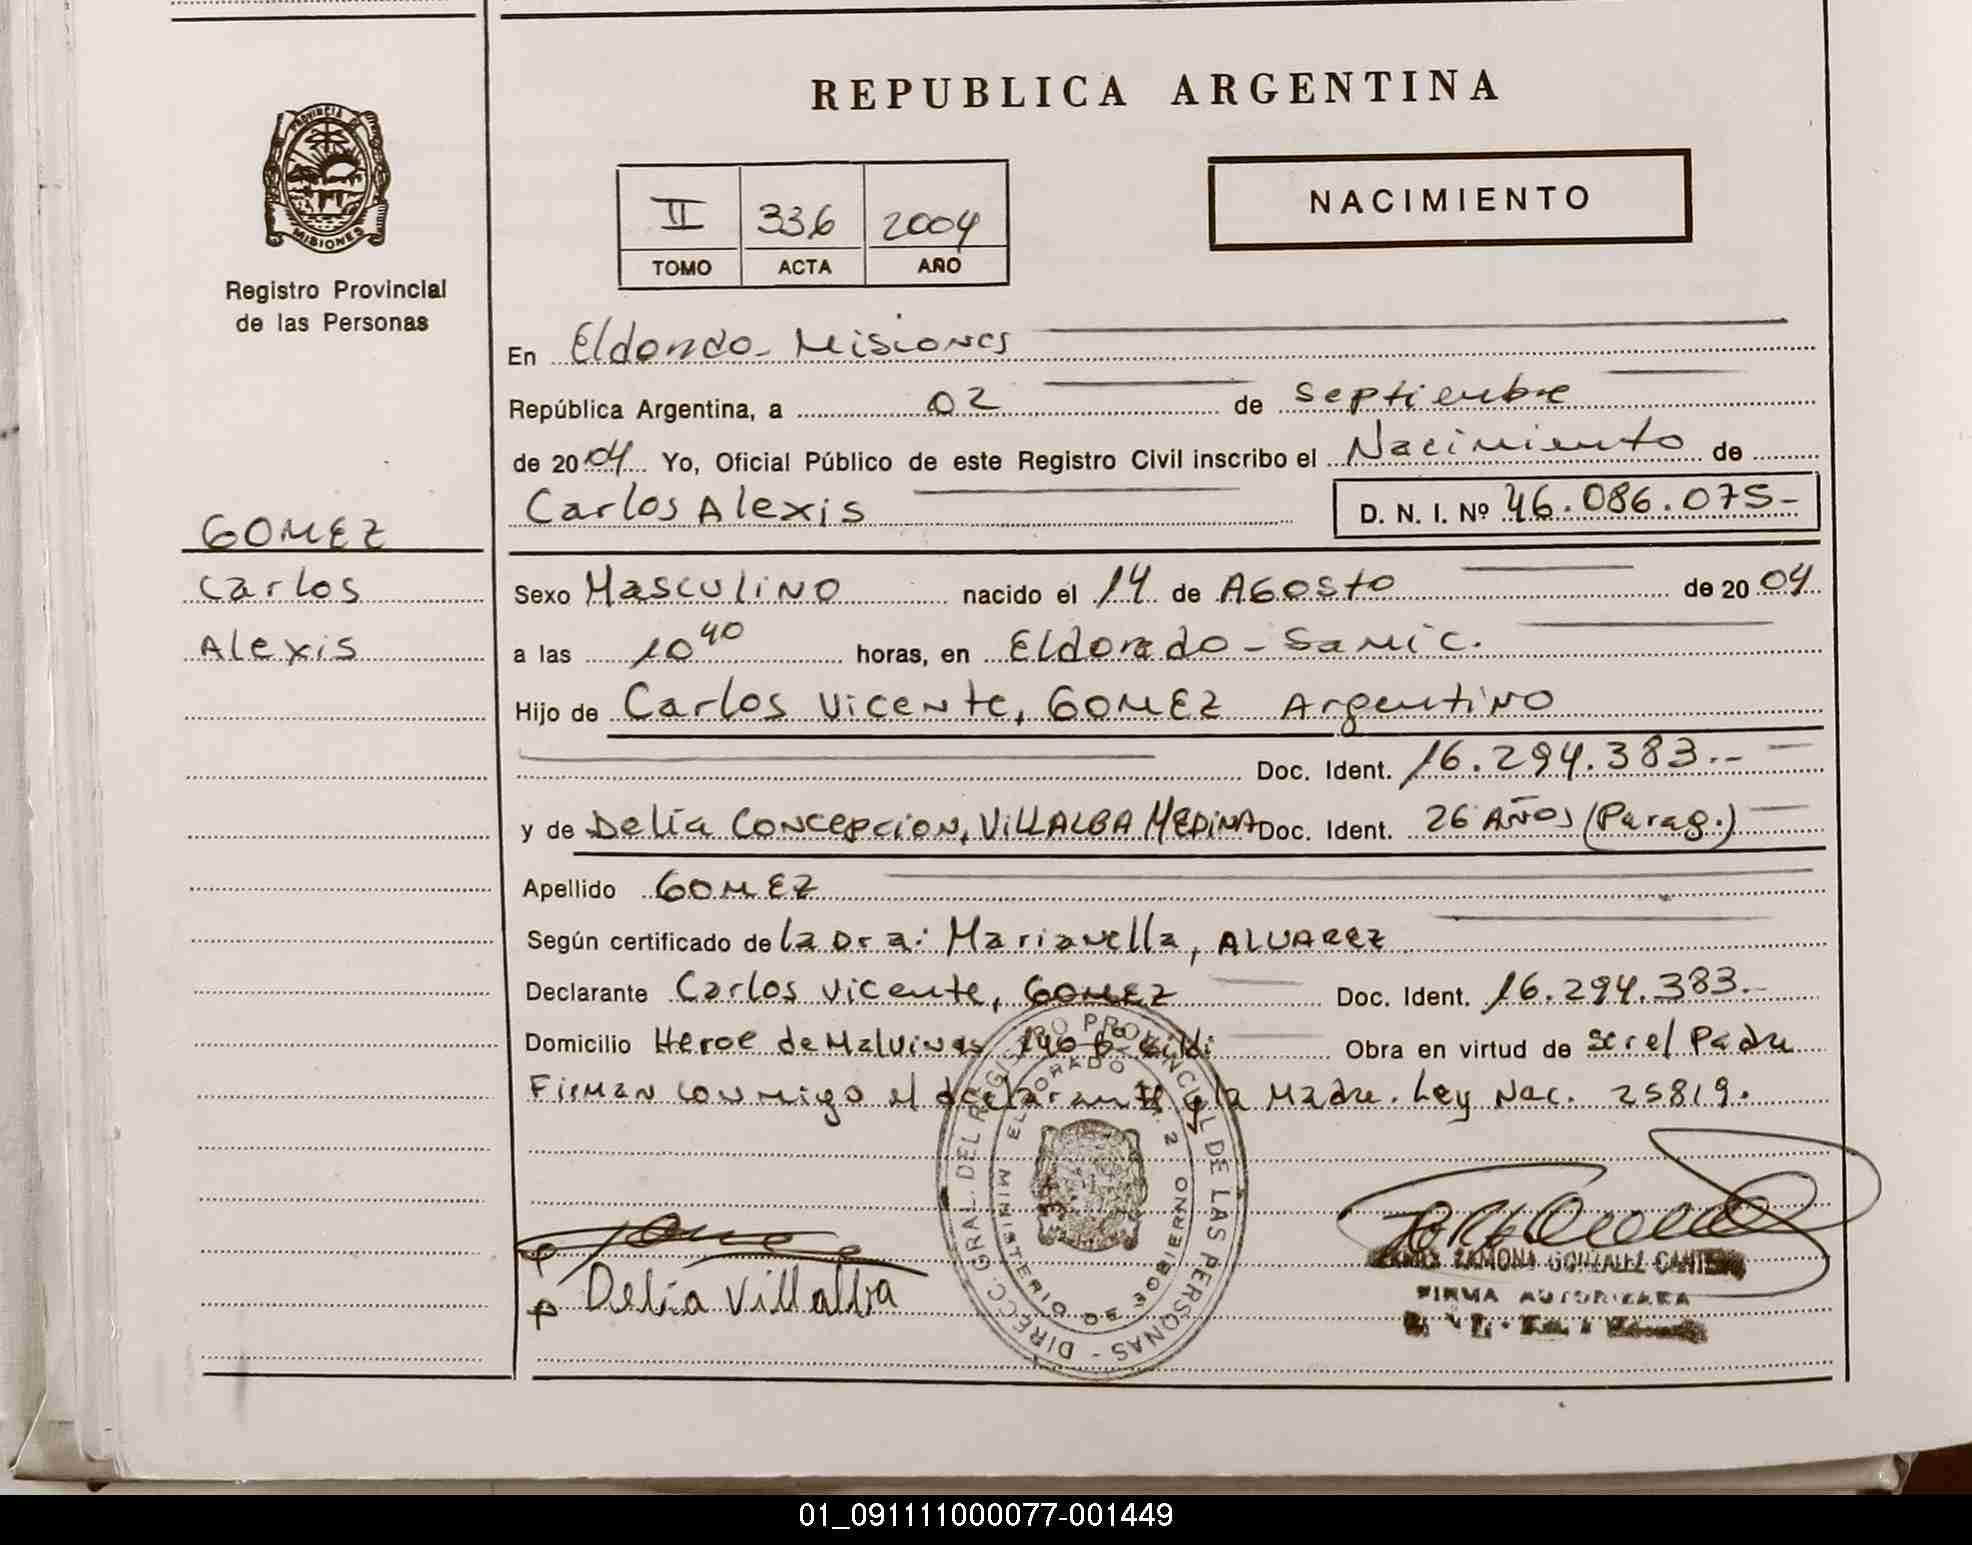 REPUBLICA ARGENTINA
PROVINCIA DE
MISIONES
Registro Provincial
de las Personas
NACIMIENTO
II 336 2004
TOMO ACTA AÑO
En Eldorado - Misiones
República Argentina, a 02 de septiembre
de 2004 Yo, Oficial Público de este Registro Civil inscribo el Nacimiento de
Carlos Alexis D. N. I. Nº 46.086.075-
GOMEZ
Carlos
Alexis
Sexo Masculino nacido el 14 de AGOSTO de 2004
a las 10 40 horas, en Eldorado - Samic.
Hijo de Carlos Vicente, GOMEZ Argentino
Doc. Ident. 16.294.383.-
y de Delia CONCEPCION, VILLALBA MEDINA Doc. Ident. 26 AÑOS (Parag.)
Apellido GOMEZ
Según certificado de la Dra: Marianella, ALVAREZ
Declarante Carlos Vicente, GOMEZ Doc. Ident. 16.294.383.-
Domicilio Heroe de Malvinas Obra en virtud de ser el Padre
Firman conmigo el declarante y la Madre. Ley Nac. 25819.
DIRECC. GRAL. DEL REGISTRO PROVINCIAL DE LAS PERSONAS -
MINISTERIO DE GOBIERNO
ELDORADO 2
Delia Villalba
RAMONA GONZALEZ
FIRMA AUTORIZADA
01_091111000077-001449